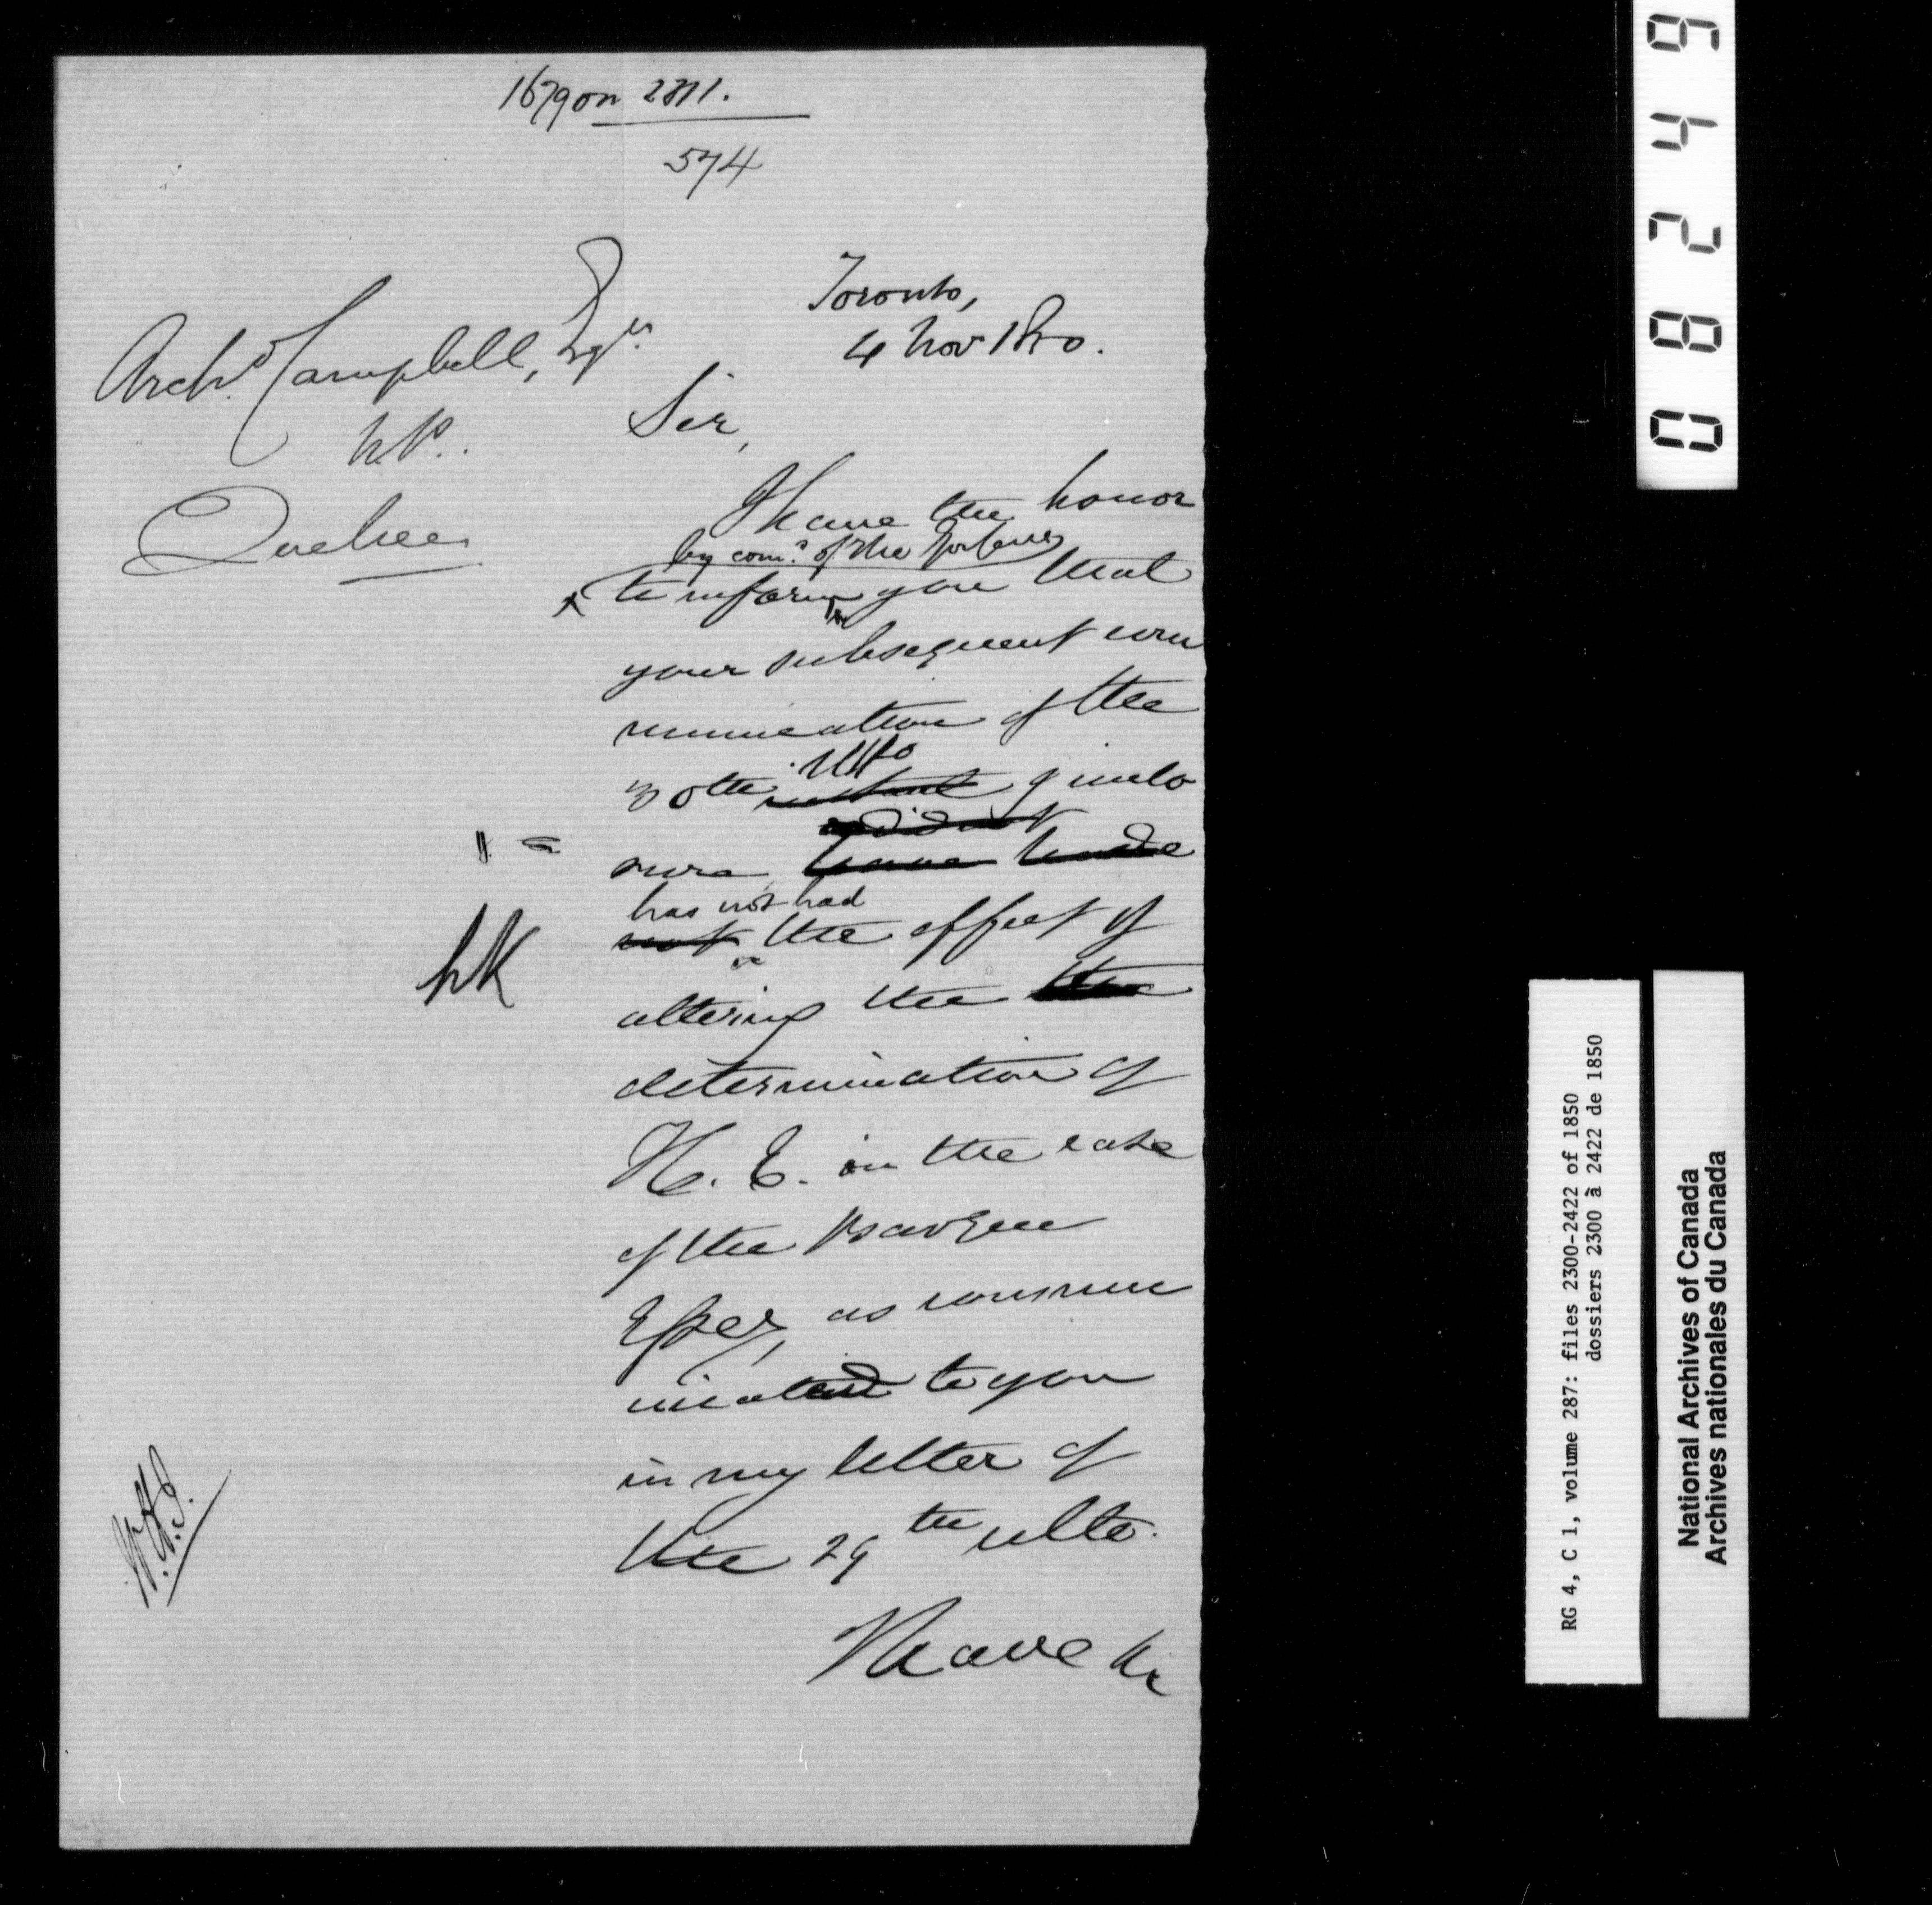 1679 on 2311.
574
Toronto,
4 Nov 1850.
Archd. Campbell, Esqr.
N.P.
Quebec
Sir,
I have the honor
by comd. of the Gov Genl
to inform you that
your subsequent com
munication of the
30th instant ulto & inclo
sure, did not have had
has not had
not the effect of
altering the the
determination of
H. E. in the case
of the Barque
Essex, as commu
nicated to you
in my letter of
the 29th ulto.
I have &c
0 8 2 4 9
RG 4, C 1, volume 287: files 2300-2422 of 1850
dossiers 2300 à 2422 de 1850
National Archives of Canada
Archives nationales du Canada